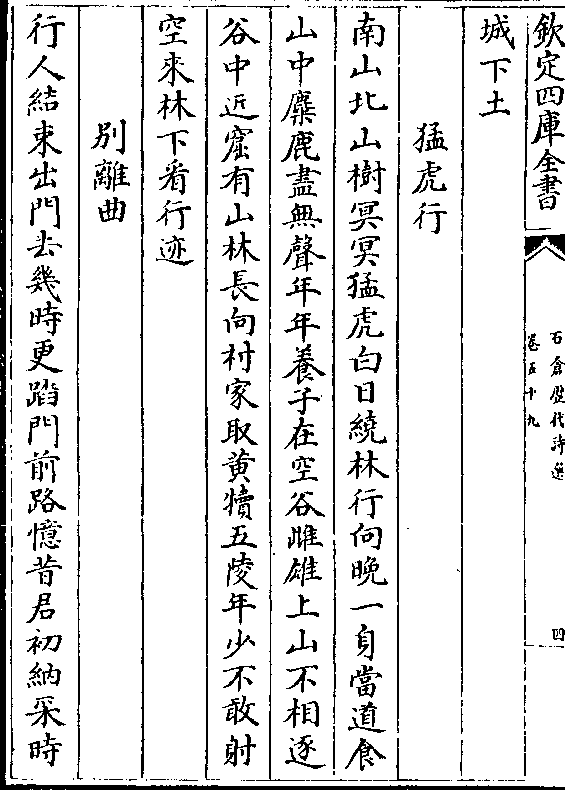 欽定四庫全書
石倉歷代詩選
卷五十九
四
城下土
猛虎行
南山北山樹冥冥猛虎白日繞林行向晚一身當道食
山中麋鹿盡無聲年年養子在空谷雌雄上山不相逐
谷中近窟有山林長向村家取黄犢五陵年少不敢射
空來林下看行迹
別離曲
行人結束出門去幾時更踏門前路憶昔君初納采時